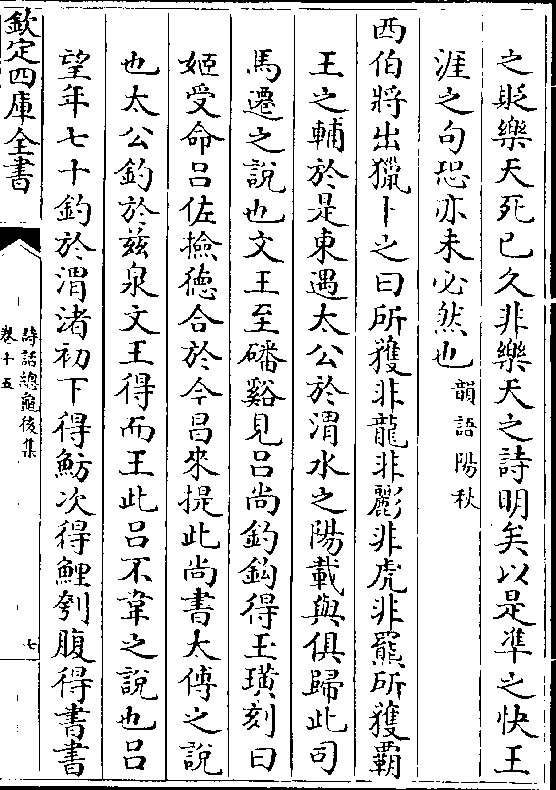 之貶樂天死已久非樂天之詩明矣以是凖之快王
涯之句恐亦未必然也韻語陽秋
西伯將出獵卜之曰所獲非龍非彲非虎非羆所獲霸
王之輔於是東遇太公於渭水之陽載與俱歸此司
馬遷之說也文王至磻谿見吕尚釣鈎得玉璜刻曰
姬受命吕佐撿徳合於今昌來提此尚書大傳之說
也太公釣於兹泉文王得而王此吕不韋之說也吕
望年七十釣於渭渚初下得魴次得鯉刳腹得書書
欽定四庫全書
詩話總龜後集
卷十五
七